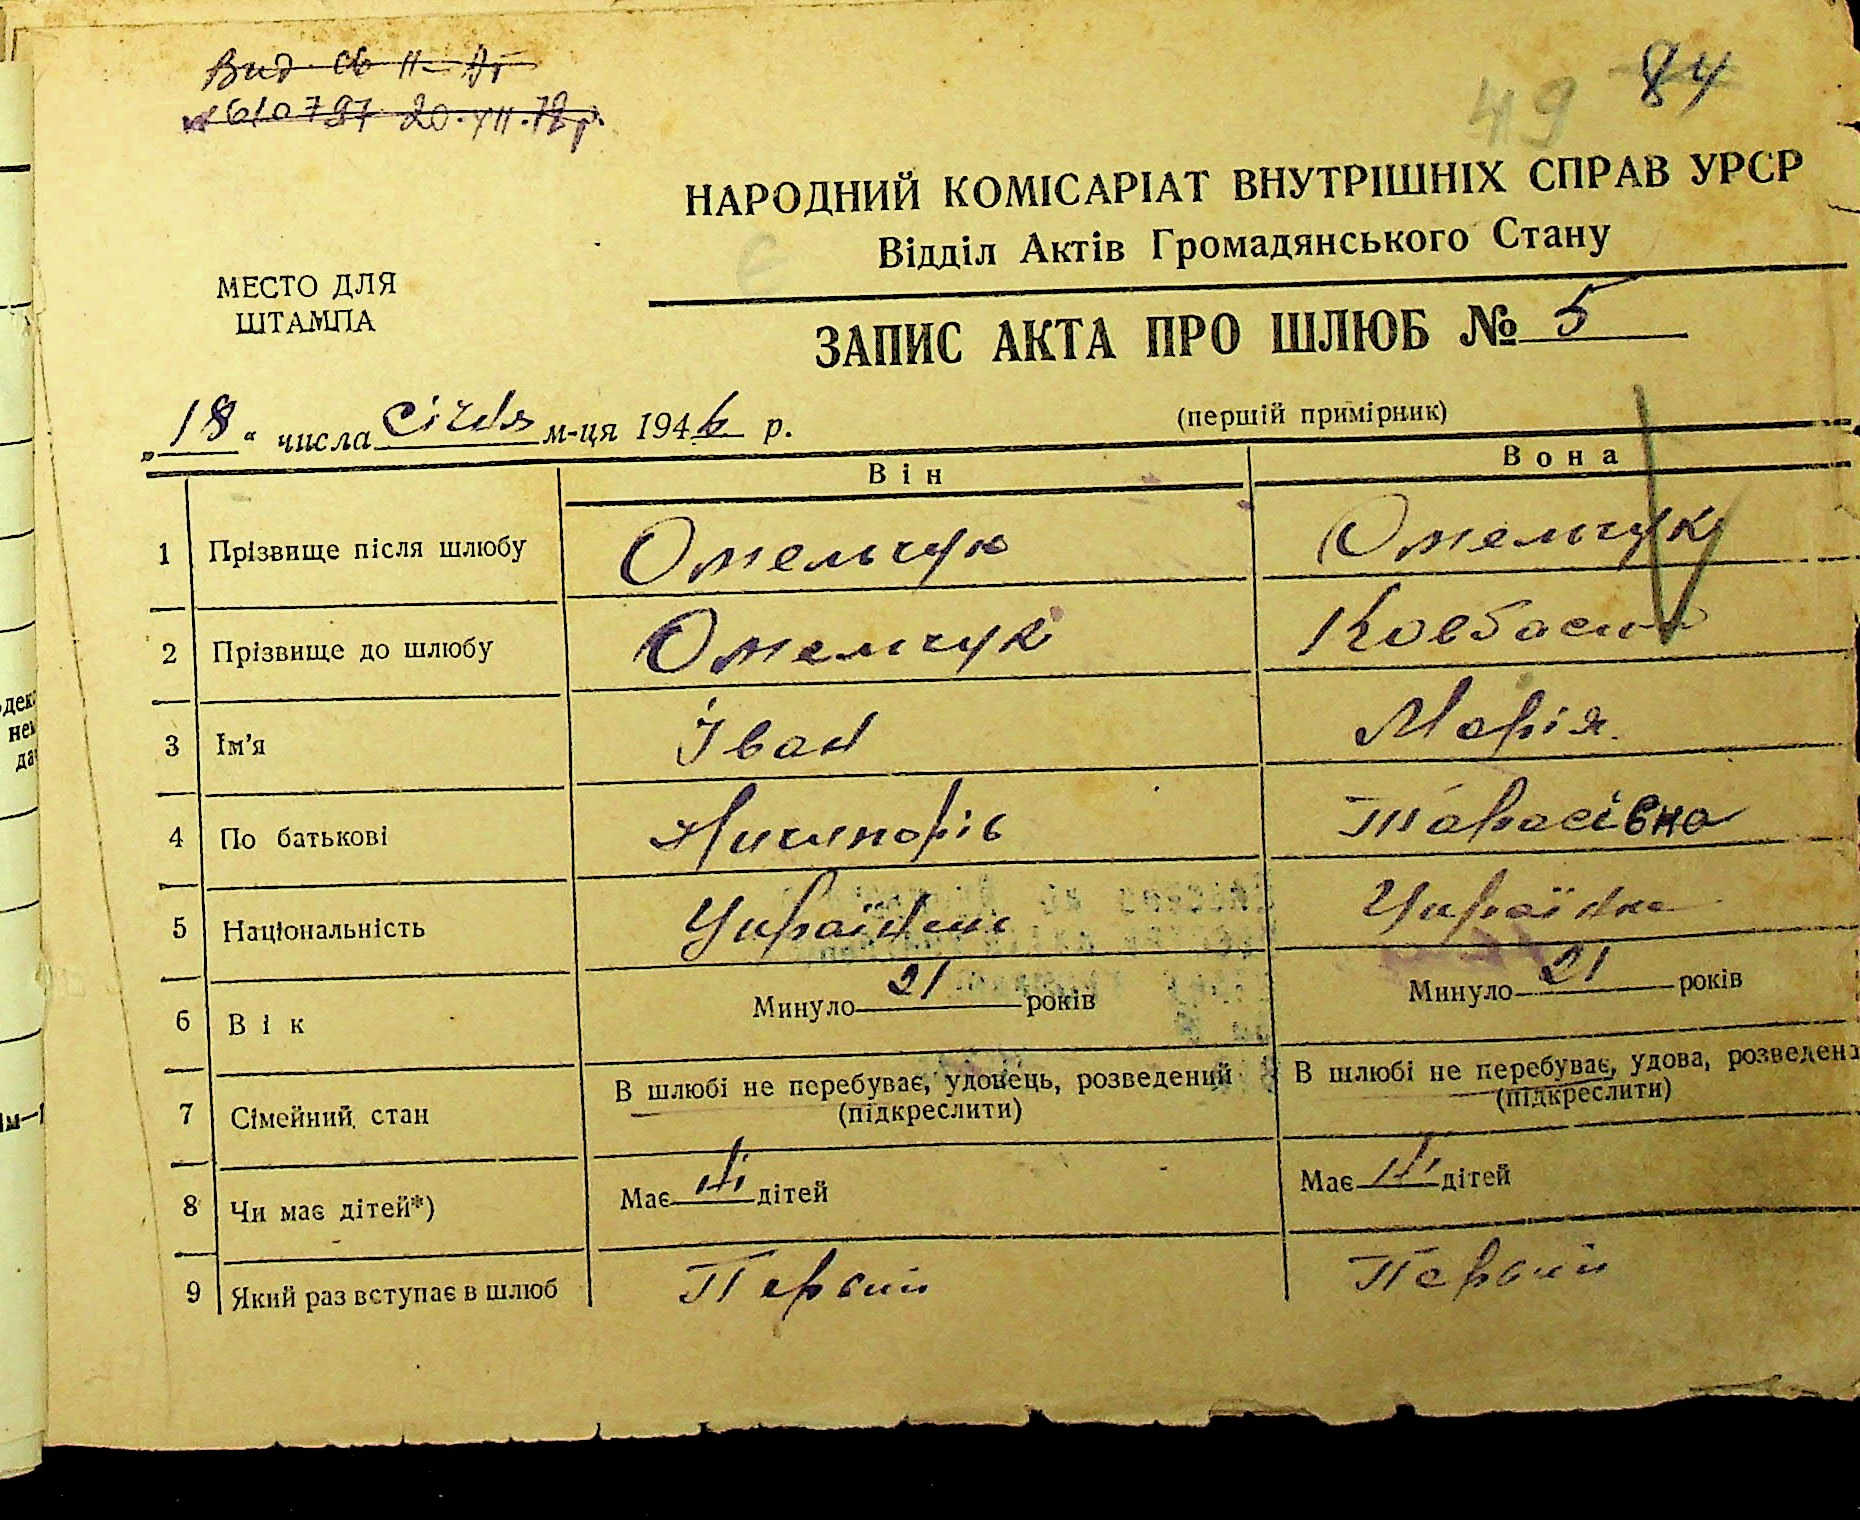 Вид. св II-АГ
№ 610797 20.XII.78 р.
49 84
НАРОДНИЙ КОМІСАРІАТ ВНУТРІШНІХ СПРАВ УРСР
Відділ Актів Громадянського Стану
МЕСТО ДЛЯ
ШТАМПА
ЗАПИС АКТА ПРО ШЛЮБ № 5
„18“ числа січня м-ця 1946 р.
(першій примірник)
Він Вона
1 Прізвище після шлюбу Омельчук Омельчук
2 Прізвище до шлюбу Омельчук
3 Ім'я Іван Марія
4 По батькові Тарасівна
5 Національність Українець Українка
6 Вік Минуло 21 років Минуло 21 років
7 Сімейний стан В шлюбі не перебуває, удовець, розведений В шлюбі не перебуває, удова, розведена
(підкреслити) (підкреслити)
8 Чи має дітей*) Має ні дітей Має ні дітей
9 Який раз вступає в шлюб Первий Первий